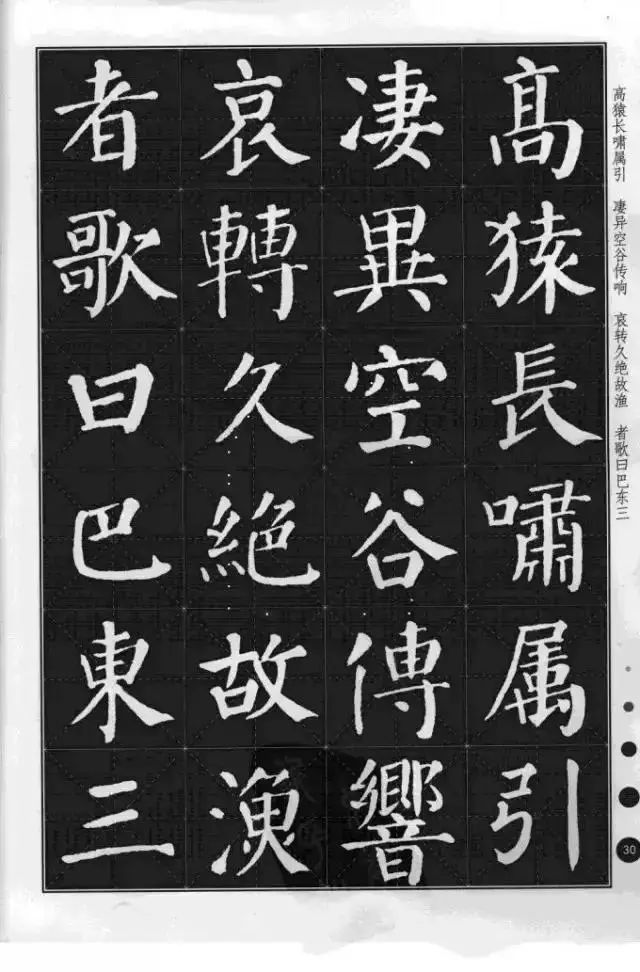 高猿長嘯属引
凄異空谷傳響
哀轉久絶故漁
者歌曰巴東三
高猿长啸属引 凄异空谷传响 哀转久绝故渔 者歌曰巴东三
30